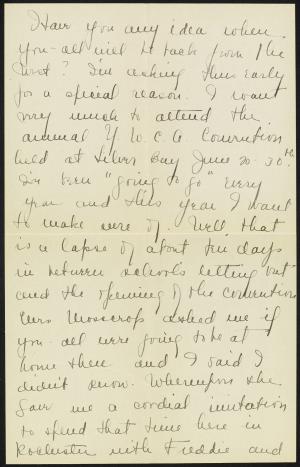 Have you any idea when
you-all will be back from the
West? I'm asking this early
for a special reason. I want
very much to attend the
annual Y. W. C. A. Convention
held at Silver Bay June 20-30th.
I've been "going to go" every
year and this year I want
to make sure of. Well, that
is a lapse of about ten days
in between schools letting out
and the opening of the convention
Mrs Mosscrop asked me if
you-all were going to be at
home then and I said I
didn't know. Whereupon she
gave me a cordial invitation
to spend that time here in
Rochester with Freddie and